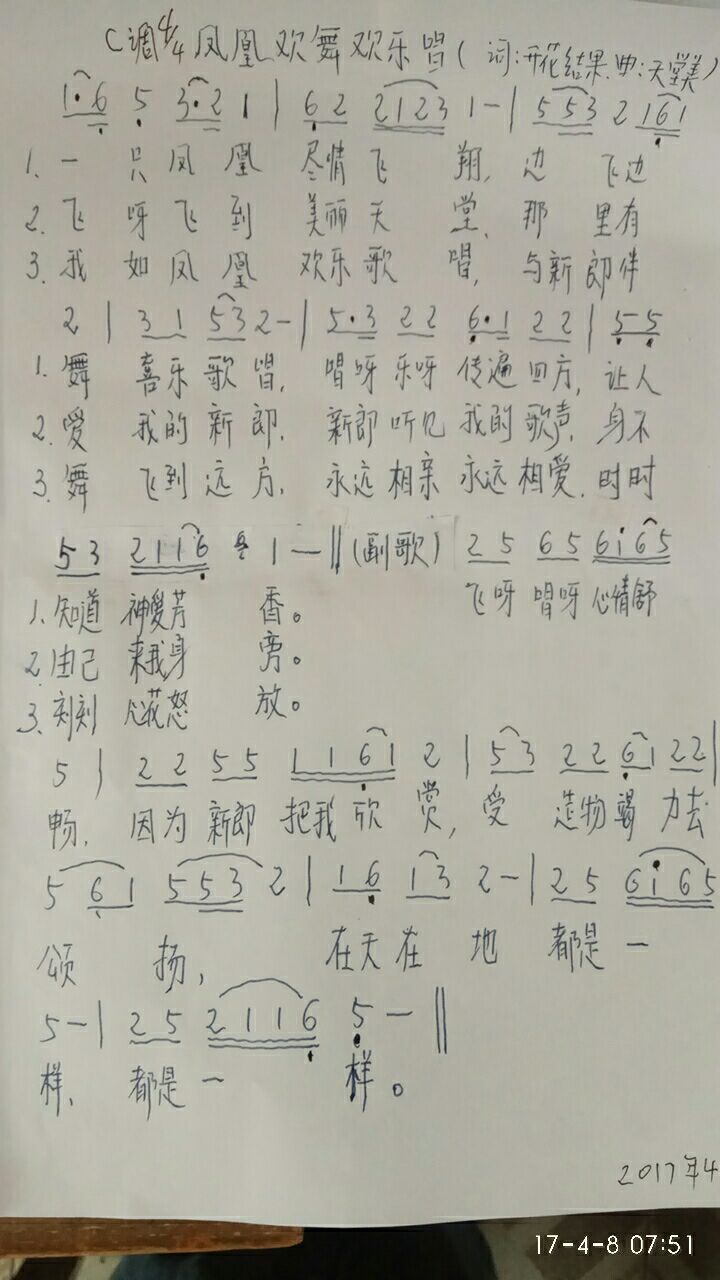 C调4/4 凤凰欢舞欢乐唱(词:开花结果.曲:天堂美)
1·6 5 3·2 1 | 6 2 2123 1 - | 5 53 2 161
1. 一只凤凰 尽情飞翔, 边飞边
2. 飞呀飞到 美丽天堂, 那里有
3. 我如凤凰 欢乐歌唱, 与新郎伴
2 | 3 1 53 2 - | 5·3 22 6·1 22 | 5 5
1. 舞 喜乐歌唱, 唱呀乐呀 传遍四方, 让人
2. 爱 我的新郎. 新郎听见 我的歌声, 身不
3. 舞 飞到远方. 永远相亲 永远相爱. 时时
53 2116 1 - ‖ (副歌) 25 65 6i65
1. 知道 神爱芳香。 飞呀 唱呀 心情舒
2. 由己 来我身旁。
3. 刻刻 心花怒放。
5 | 22 55 1161 2 | 53 22 61 22 |
畅, 因为 新郎 把我欣赏, 受造物竭力去
5 61 553 2 | 16 13 2 - | 25 6i65
颂扬, 在天在地 都是一
5 - | 25 2116 5 - ‖
样, 都是一样。
2017年4
17-4-8 07:51